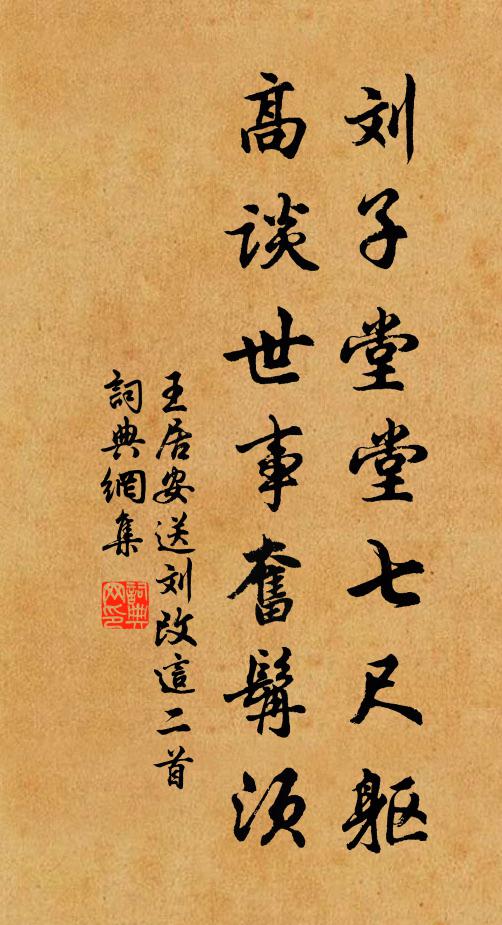 刘子堂堂七尺躯
高谈世事奮髯须
王居安送刘改這二首
詞典網集
詞典網印